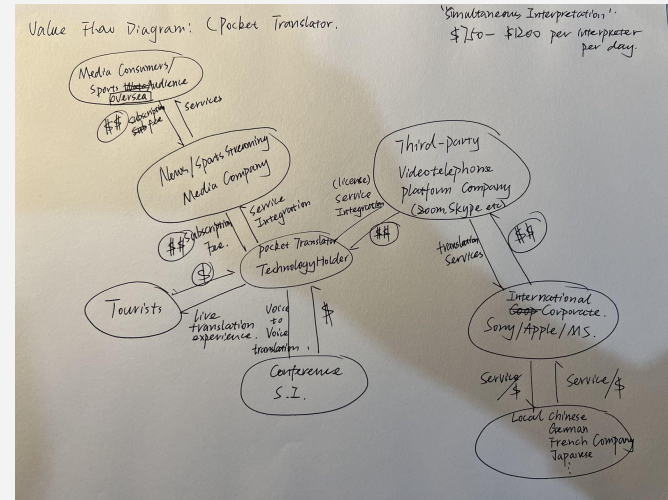 Value Flow Diagram: (Pocket Translator.
"Simultaneous Interpretation".
$750 - $1200 per interpreter
per day.
Media Consumers/
Sports Audience
oversea
$$ subscription
fee
services
News/Sports Streaming
Media Company
$$ Subscription
Fee.
Service
Integration
Third-party
Videotelephone
platform Company
(Zoom, Skype etc)
(license)
Service
Integration
$$
pocket Translator
Technology Holder
$
Tourists
Live
translation
experience.
Voice
to
Voice
translation.
$
Conference
S.I.
translation
Services
$$
International
Corporate.
Sony/Apple/MS.
Service
/$
Service/$
Local Chinese
German
French Company
Japanese
⋮